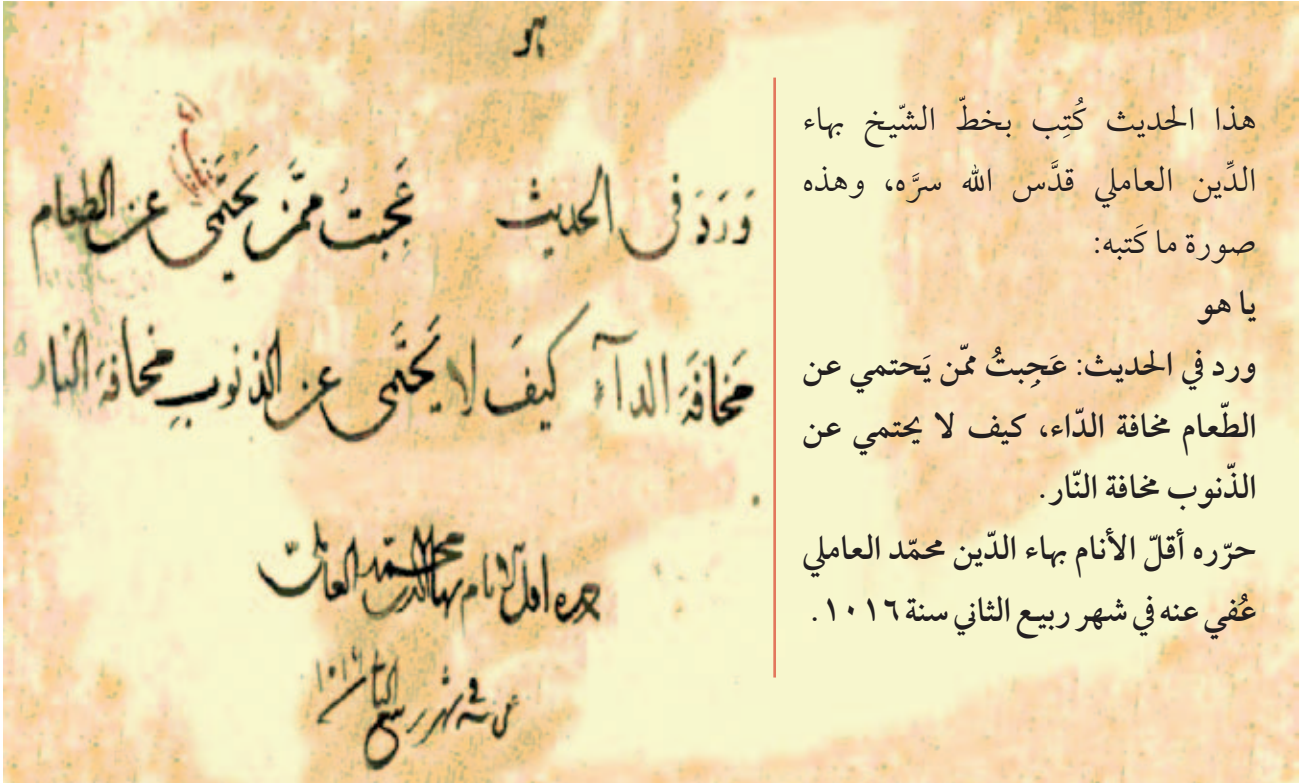 هذا الحديث كُتِب بخطّ الشّيخ بهاء
الدِّين العاملي قدَّس الله سرَّه، وهذه
صورة ما كَتبه:
يا هو
ورد في الحديث: عَجِبتُ ممّن يَحتمي عن
الطّعام مخافة الدّاء، كيف لا يحتمي عن
الذّنوب مخافة النّار.
حرّره أقلّ الأنام بهاء الدّين محمّد العاملي
عُفي عنه في شهر ربيع الثاني سنة ١٠١٦.
هو
وَرَدَ في الحديث عَجبتُ ممَّن يَحتَمى عن الطعام
مَخافَةَ الدآء كيفَ لا يَحتَمى عن الذنوبِ مخافة النار
حرره اقل الانام بهاء الدين محمد العاملي
عفى عنه في شهر ربيع الثاني ١٠١٦